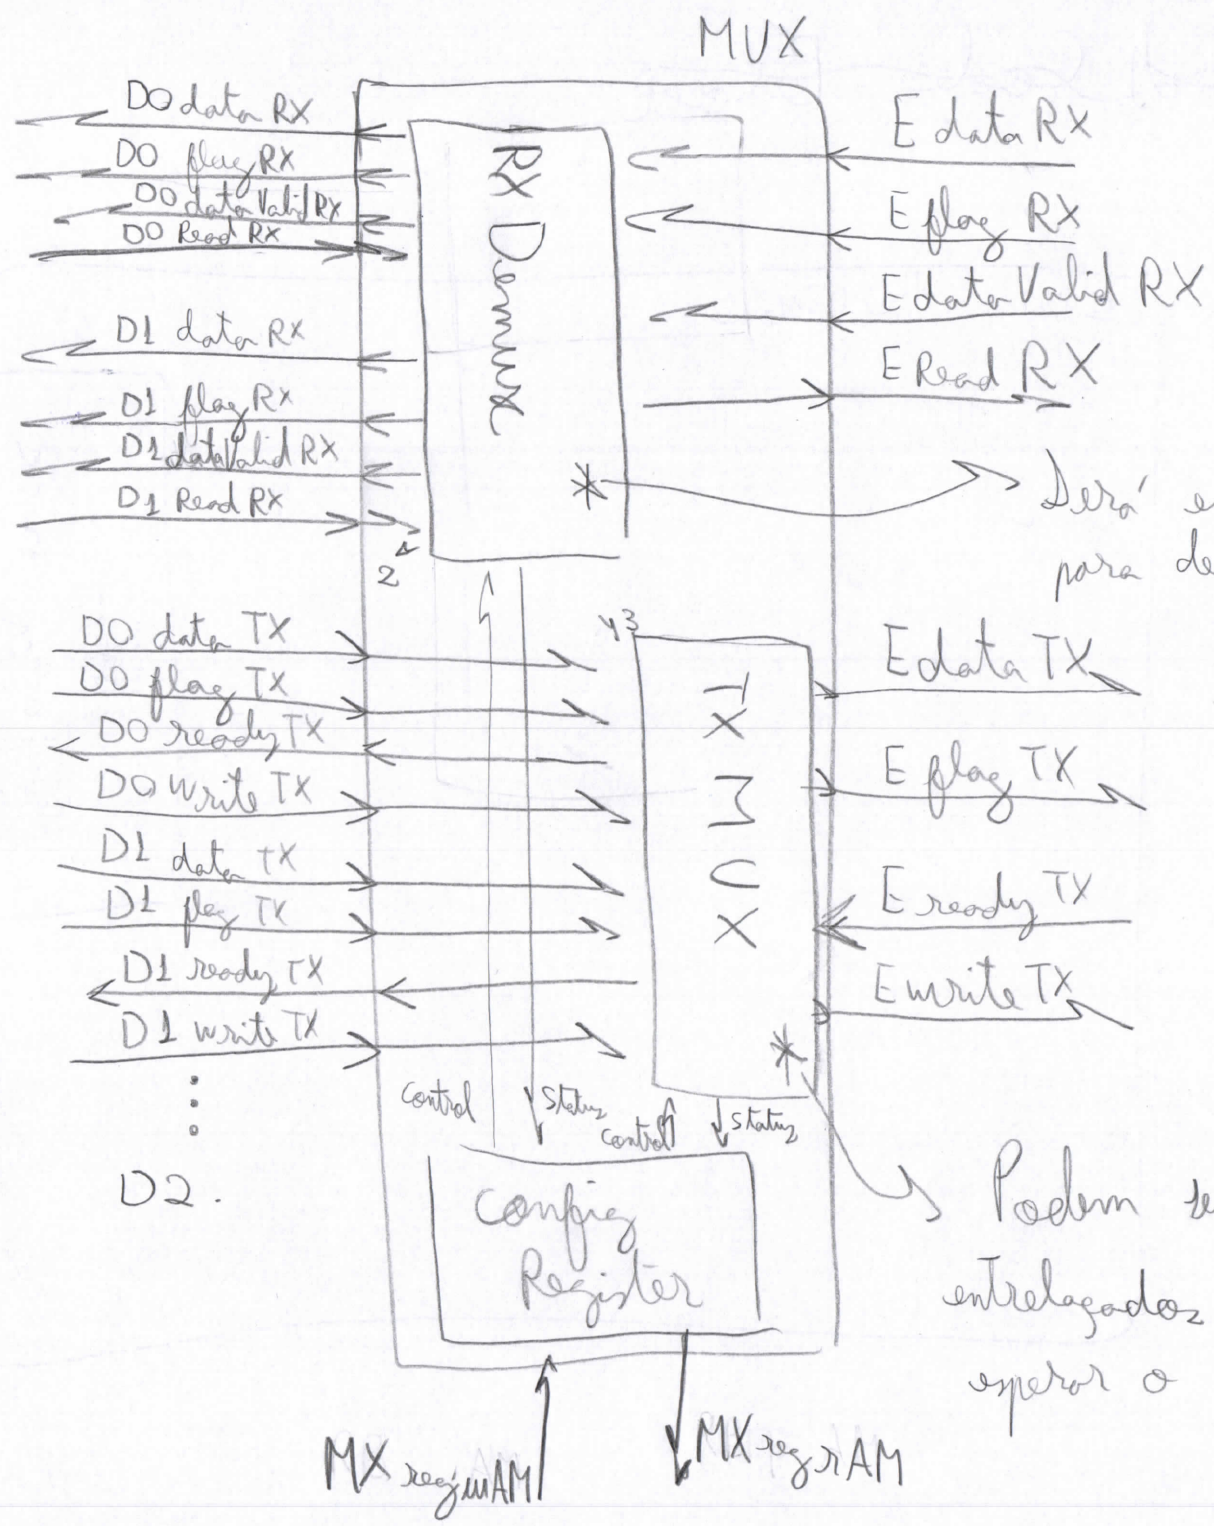 MUX
D0 data RX
D0 flag RX
D0 data Valid RX
D0 Read RX
D1 data RX
D1 flag RX
D1 dataValid RX
D1 Read RX
2
RX Demux
*
E data RX
E flag RX
E dataValid RX
E Read RX
Será e
para de
D0 data TX
D0 flag TX
D0 ready TX
D0 write TX
D1 data TX
D1 flag TX
D1 ready TX
D1 write TX
D2.
3
TX MUX
*
E data TX
E flag TX
E ready TX
E write TX
Control
Status
Control
Status
Config
Register
Podem se
entrelaçados
esperar o
MX reg AM
MX reg AM